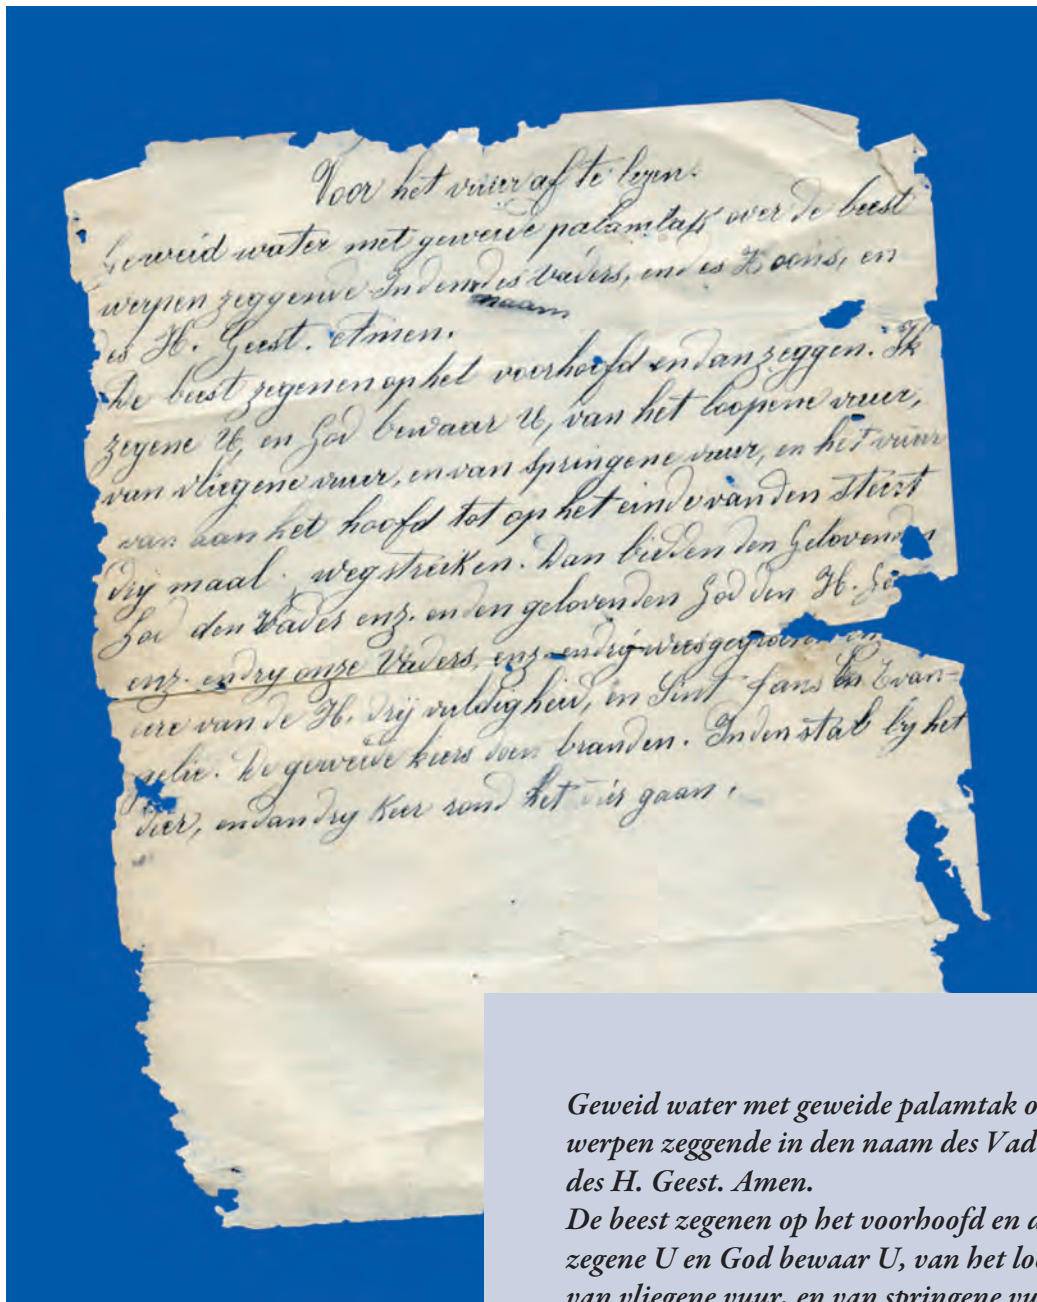 Voor het vuur af te lezen.
Geweid water met geweide palamtak over de beest
werpen zeggende In den des Vaders, en des Zoons, en
naam
des H. Geest. Amen.
De beest zegenen op het voorhoofd en dan zeggen. Ik
zegene U, en God bewaar U, van het loopene vuur,
van vliegene vuur, en van springene vuur, en het vuur
van aan het hoofd tot op het einde van den steirt
drij maal wegstreiken. Dan bidden den Geloven in
God den Vader enz. en den geloven den God den H. Ge
enz. en dry onze Vaders, enz. en drij weesgegroeten
eere van de H. drij vuldigheid, en Sint Jans Evan-
gelie. De geweide keers doen branden. In den stal by het
dier, en dan dry keer rond het dier gaan.
Geweid water met geweide palamtak o
werpen zeggende in den naam des Vad
des H. Geest. Amen.
De beest zegenen op het voorhoofd en d
zegene U en God bewaar U, van het loo
van vliegene vuur, en van springene vu